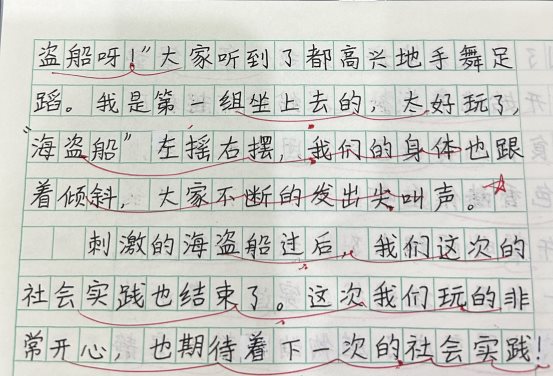 盗船呀!”大家听到了都高兴地手舞足
蹈。我是第一组坐上去的,太好玩了,
“海盗船”左摇右摆,我们的身体也跟
着倾斜,大家不断的发出尖叫声。
刺激的海盗船过后,我们这次的
社会实践也结束了。这次我们玩的非
常开心,也期待着下一次的社会实践!